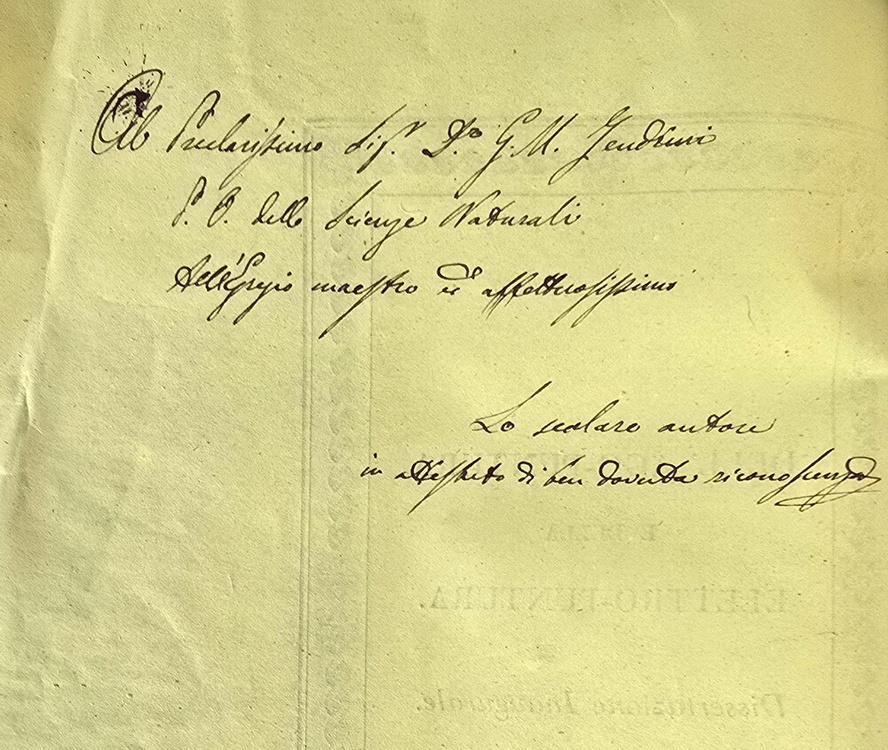 Al Preclarissimo Sig.r D.re G. M. Zendrini
P. O. delle Scienze Naturali
All'Egregio maestro ed affettuosissimo
Lo scolaro autore
in attestato di ben dovuta riconoscenza
E DELLA
ELETTRO-PUNTURA.
Dissertazione Inaugurale.